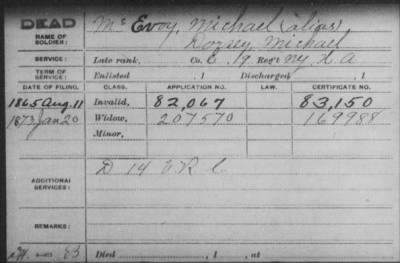 DEAD
NAME OF SOLDIER: Mc Evoy, Michael (alias)
Michael
SERVICE: Late rank, Co. 19 Reg't NY
TERM OF SERVICE: Enlisted , 1 Discharged , 1
DATE OF FILING. CLASS. APPLICATION NO. LAW. CERTIFICATE NO.
1865 Aug. 11 Invalid, 82,067 83,150
1873 Jan 20 Widow, 207570 169988
Minor,
ADDITIONAL SERVICES: D 14
REMARKS:
Died , 1 , at